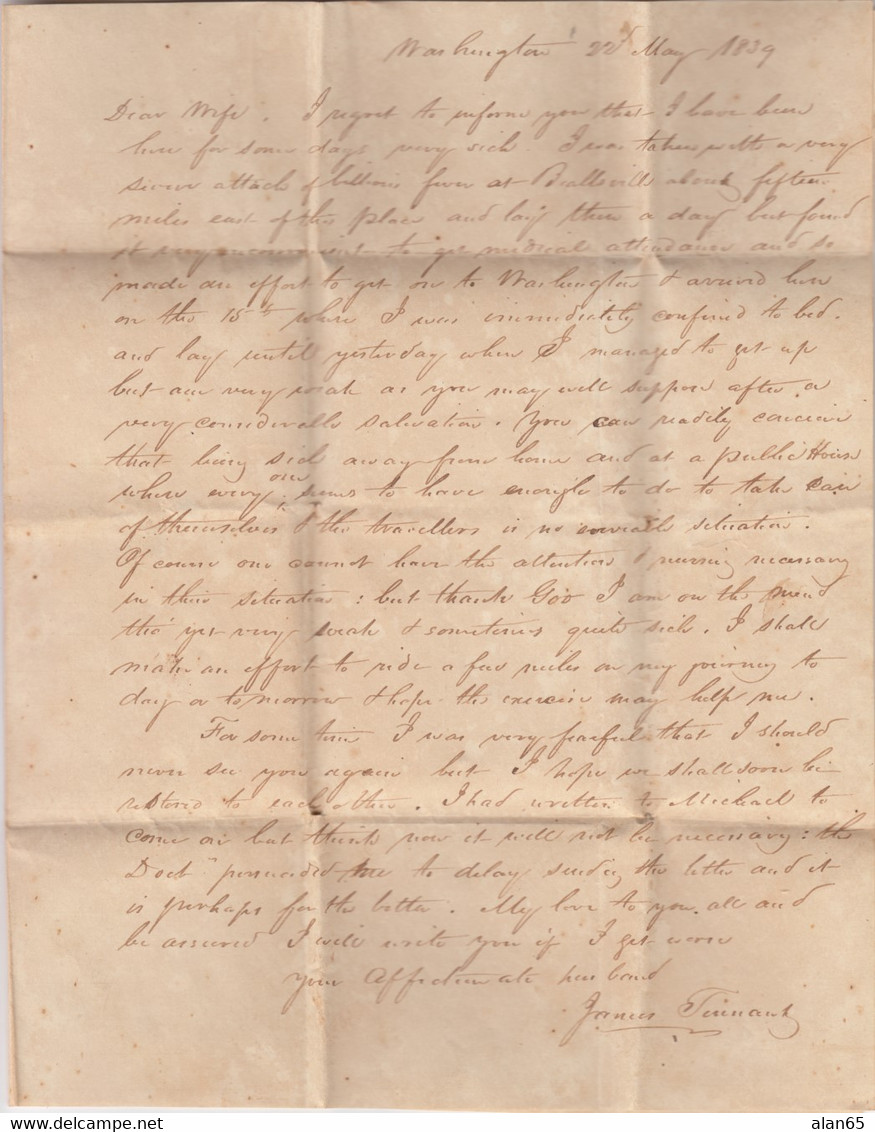 Washington 22d May 1839
Dear Wife. I regret to inform you that I have been
here for some days very sick. I was taken with a very
severe attack of billious fever at Beallsville about fifteen
miles east of this place and lay there a day but found
it very inconvenient to get medical attendance and so
made an effort to get on to Washington & arrived here
on the 15th where I was immediately confined to bed.
and lay until yesterday when I managed to get up
but am very weak as you may well suppose after a
very considerable salivation. You can readily conceive
that being sick away from home and at a public House
where every one seems to have enough to do to take care
of themselves & the travellers is no enviable situation.
Of course one cannot have the attention & nursing necessary
in their situation: but thank God I am on the mend
tho' yet very weak & sometimes quite sick. I shall
make an effort to ride a few miles on my journey to
day or to morrow & hope the exercise may help me.
For some time I was very fearful that I should
never see you again but I hope we shall soon be
restored to each other. I had written to Michael to
come on but think now it will not be necessary: the
Doctr persuaded me to delay sending the letter and it
is perhaps for the better. My love to you all and
be assured I will write you if I get worse
your affectionate husband
James
alan65